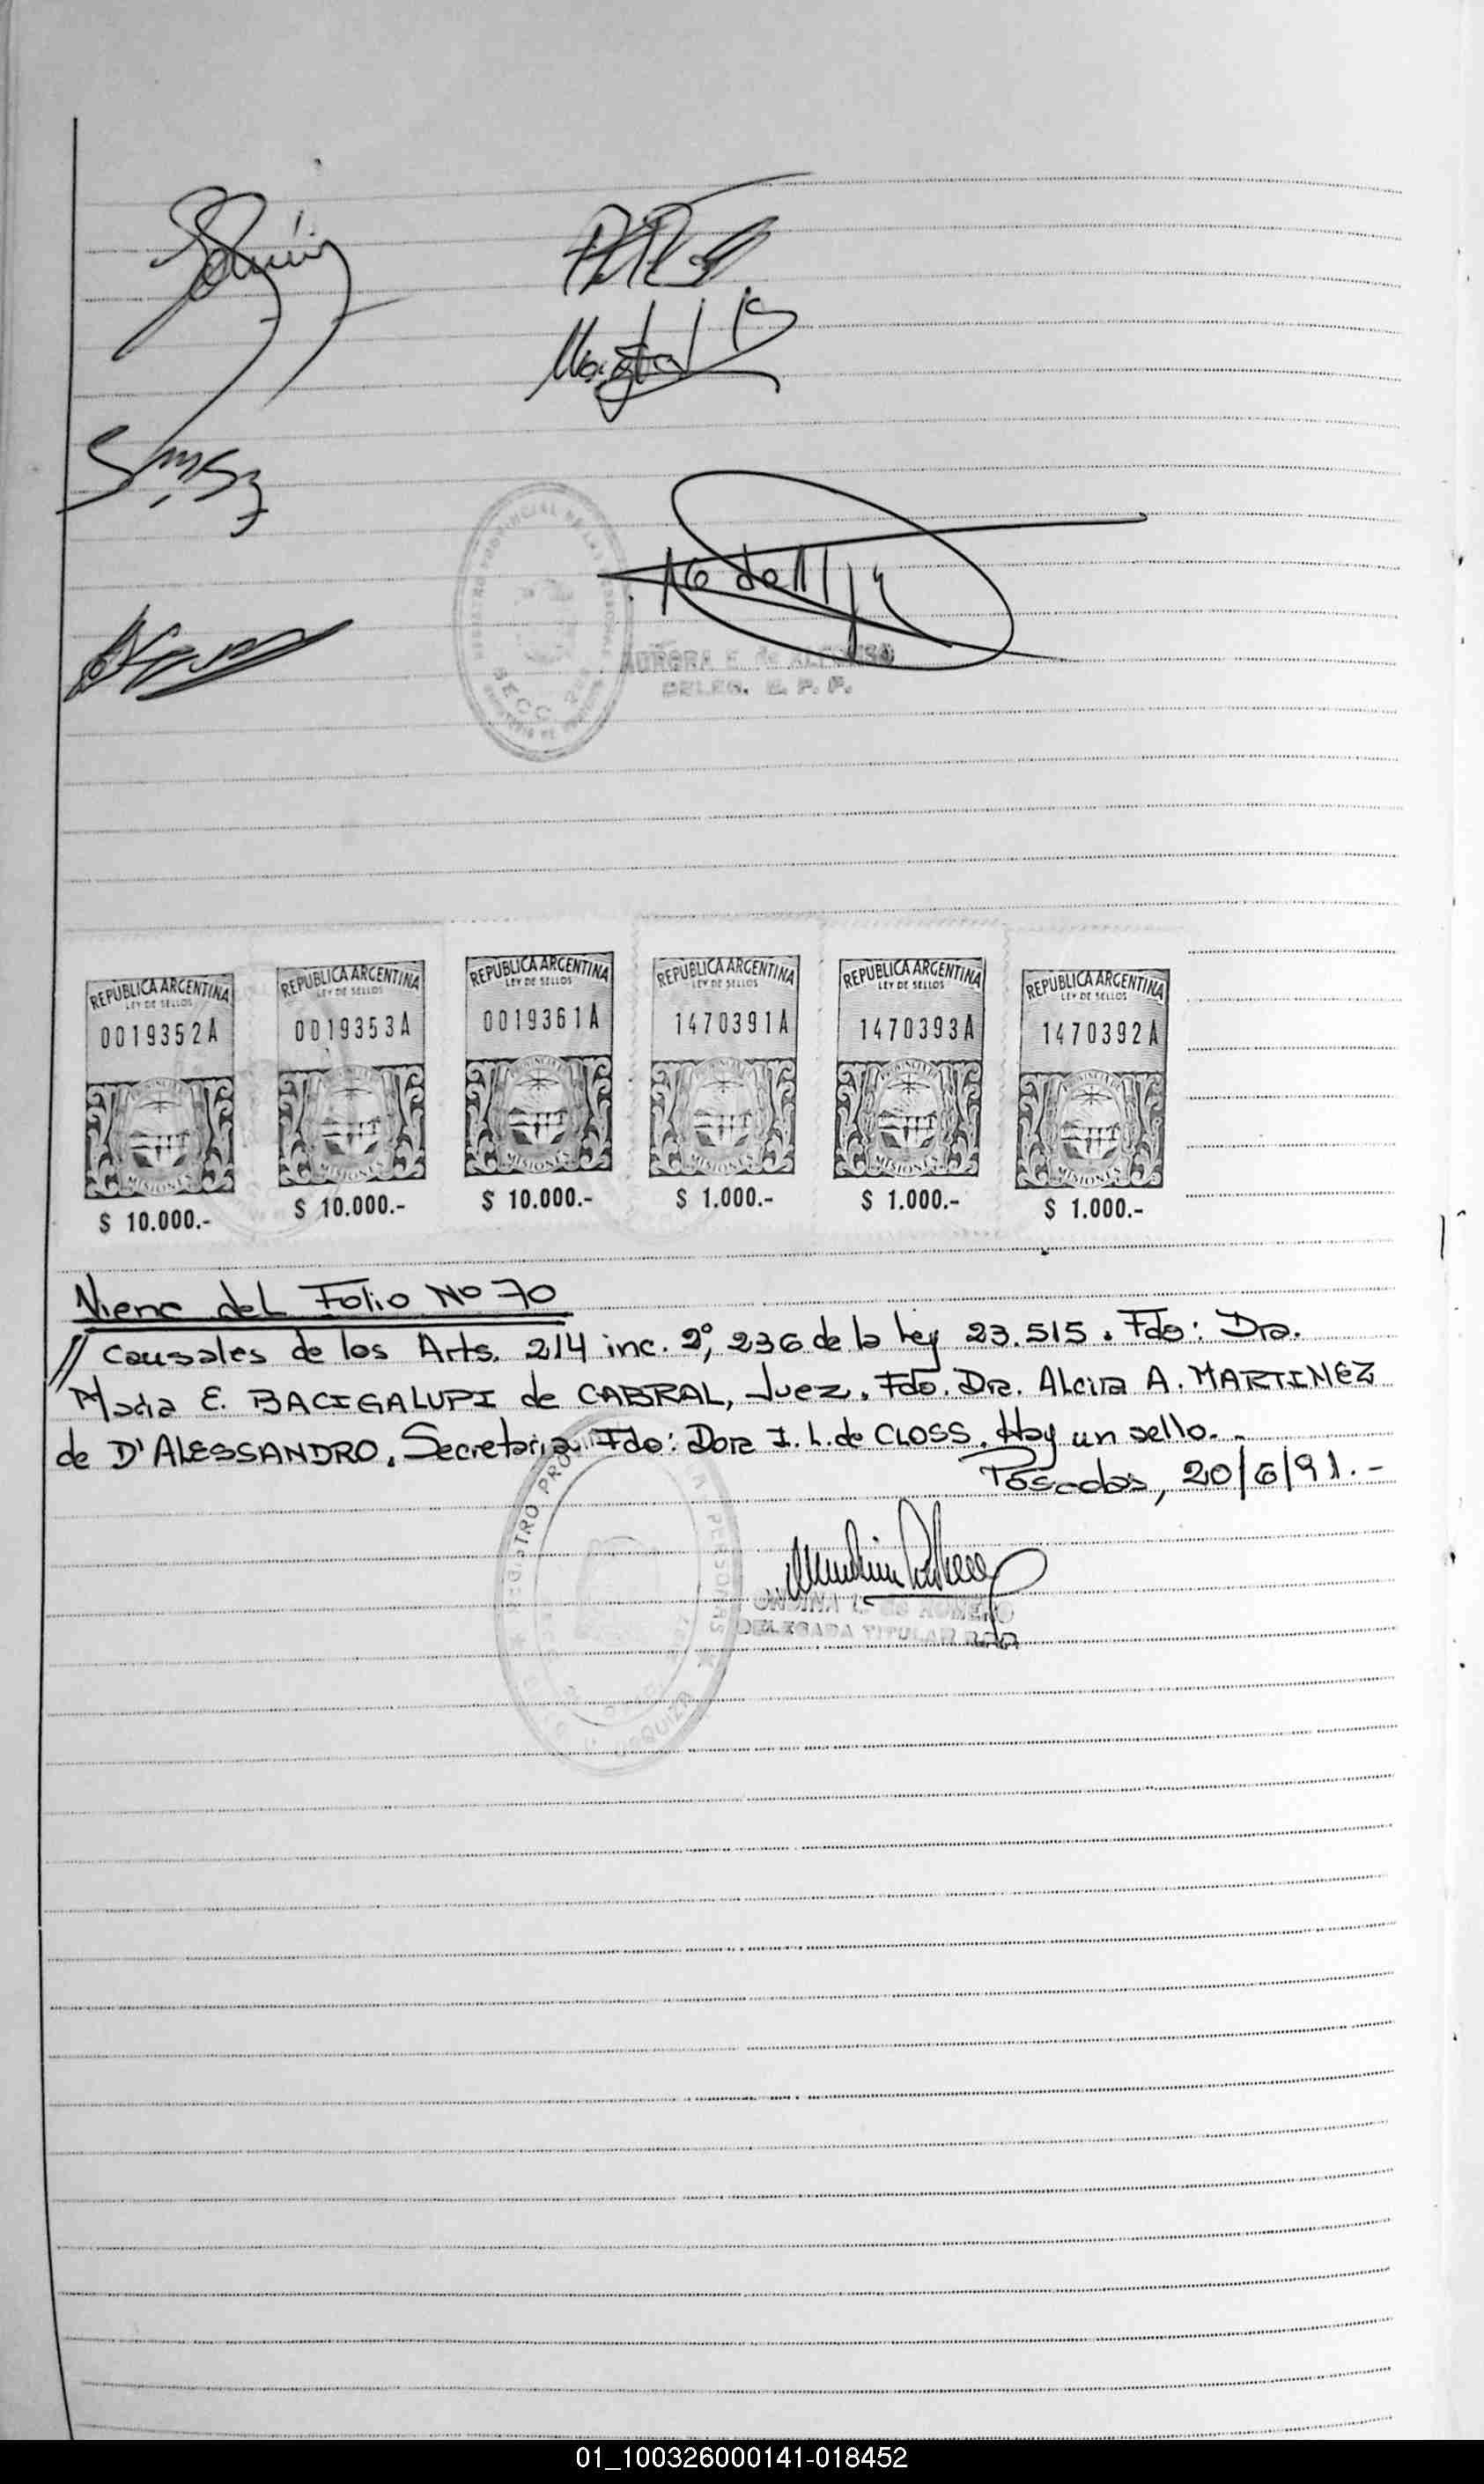 AURORA E. de ALFONSO
DELEG. E. P. P.
REPUBLICA ARGENTINA
LEY DE SELLOS
0019352A
MISIONES
$ 10.000.-
REPUBLICA ARGENTINA
LEY DE SELLOS
0019353A
MISIONES
$ 10.000.-
REPUBLICA ARGENTINA
LEY DE SELLOS
0019361A
MISIONES
$ 10.000.-
REPUBLICA ARGENTINA
LEY DE SELLOS
1470391A
MISIONES
$ 1.000.-
REPUBLICA ARGENTINA
LEY DE SELLOS
1470393A
MISIONES
$ 1.000.-
REPUBLICA ARGENTINA
LEY DE SELLOS
1470392A
MISIONES
$ 1.000.-
Viene del Folio Nº 70
// Causales de los Arts. 214 inc. 2º, 236 de la Ley 23.515. Fdo: Dra.
Maria E. BACIGALUPI de CABRAL, Juez. Fdo. Dra. Alcira A. MARTINEZ
de D'ALESSANDRO. Secretaria. Fdo: Dora I. L. de CLOSS. Hay un sello.
Posadas, 20/6/91.-
DELEGADA TITULAR
01_100326000141-018452